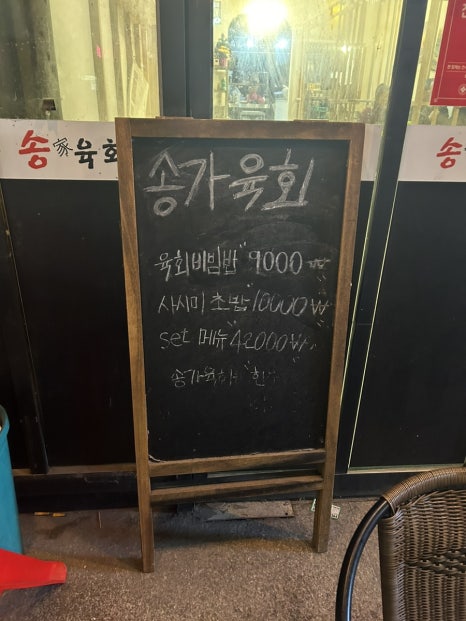 송家육회
송
송가육회
육회비빔밥 9000 ₩
사시미 초밥 10000 ₩
set 메뉴 42000 ₩
송가육회